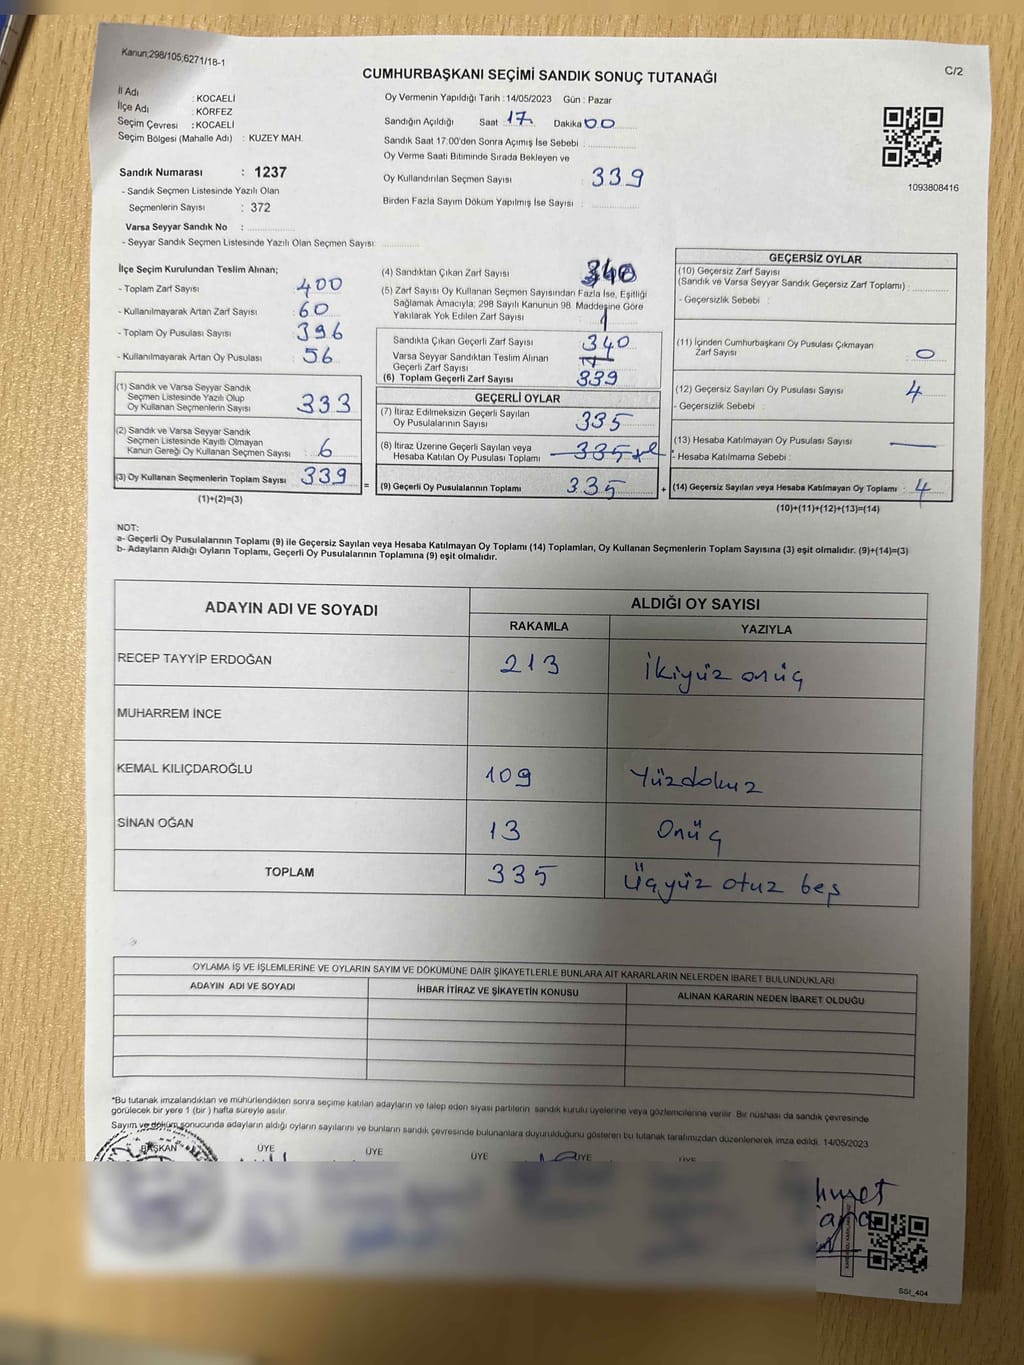 Kanun;298/105,6271/18-1
C/2
CUMHURBAŞKANI SEÇİMİ SANDIK SONUÇ TUTANAĞI
İl Adı : KOCAELİ
İlçe Adı : KÖRFEZ
Seçim Çevresi : KOCAELİ
Seçim Bölgesi (Mahalle Adı) : KUZEY MAH.
Sandık Numarası : 1237
- Sandık Seçmen Listesinde Yazılı Olan
Seçmenlerin Sayısı : 372
Varsa Seyyar Sandık No :
- Seyyar Sandık Seçmen Listesinde Yazılı Olan Seçmen Sayısı:
Oy Vermenin Yapıldığı Tarih : 14/05/2023 Gün : Pazar
Sandığın Açıldığı Saat 17 Dakika 00
Sandık Saat 17:00'den Sonra Açımış İse Sebebi :
Oy Verme Saati Bitiminde Sırada Bekleyen ve
Oy Kullandırılan Seçmen Sayısı : 339
Birden Fazla Sayım Döküm Yapılmış İse Sayısı :
1093808416
İlçe Seçim Kurulundan Teslim Alınan;
- Toplam Zarf Sayısı : 400
- Kullanılmayarak Artan Zarf Sayısı : 60
- Toplam Oy Pusulası Sayısı : 396
- Kullanılmayarak Artan Oy Pusulası : 56
(1) Sandık ve Varsa Seyyar Sandık
Seçmen Listesinde Yazılı Olup
Oy Kullanan Seçmenlerin Sayısı : 333
(2) Sandık ve Varsa Seyyar Sandık
Seçmen Listesinde Kayıtlı Olmayan
Kanun Gereği Oy Kullanan Seçmen Sayısı : 6
(3) Oy Kullanan Seçmenlerin Toplam Sayısı : 339
(1)+(2)=(3)
=
(4) Sandıktan Çıkan Zarf Sayısı : 340
(5) Zarf Sayısı Oy Kullanan Seçmen Sayısından Fazla İse, Eşitliği
Sağlamak Amacıyla; 298 Sayılı Kanunun 98. Maddesine Göre
Yakılarak Yok Edilen Zarf Sayısı : 1
Sandıkta Çıkan Geçerli Zarf Sayısı : 340
Varsa Seyyar Sandıktan Teslim Alınan
Geçerli Zarf Sayısı :
(6) Toplam Geçerli Zarf Sayısı : 339
GEÇERLİ OYLAR
(7) İtiraz Edilmeksizin Geçerli Sayılan
Oy Pusulalarının Sayısı : 335
(8) İtiraz Üzerine Geçerli Sayılan veya
Hesaba Katılan Oy Pusulası Toplamı : 335
(9) Geçerli Oy Pusulalarının Toplamı : 335
+
GEÇERSİZ OYLAR
(10) Geçersiz Zarf Sayısı
(Sandık ve Varsa Seyyar Sandık Geçersiz Zarf Toplamı) :
- Geçersizlik Sebebi :
(11) İçinden Cumhurbaşkanı Oy Pusulası Çıkmayan
Zarf Sayısı : 0
(12) Geçersiz Sayılan Oy Pusulası Sayısı : 4
- Geçersizlik Sebebi :
(13) Hesaba Katılmayan Oy Pusulası Sayısı : —
- Hesaba Katılmama Sebebi :
(14) Geçersiz Sayılan veya Hesaba Katılmayan Oy Toplamı : 4
(10)+(11)+(12)+(13)=(14)
NOT:
a- Geçerli Oy Pusulalarının Toplamı (9) ile Geçersiz Sayılan veya Hesaba Katılmayan Oy Toplamı (14) Toplamları, Oy Kullanan Seçmenlerin Toplam Sayısına (3) eşit olmalıdır. (9)+(14)=(3)
b- Adayların Aldığı Oyların Toplamı, Geçerli Oy Pusulalarının Toplamına (9) eşit olmalıdır.
ADAYIN ADI VE SOYADI
ALDIĞI OY SAYISI
RAKAMLA YAZIYLA
RECEP TAYYİP ERDOĞAN 213 İkiyüz onüç
MUHARREM İNCE
KEMAL KILIÇDAROĞLU 109 Yüzdokuz
SİNAN OĞAN 13 Onüç
TOPLAM 335 Üçyüz otuz beş
OYLAMA İŞ VE İŞLEMLERİNE VE OYLARIN SAYIM VE DÖKÜMÜNE DAİR ŞİKAYETLERLE BUNLARA AİT KARARLARIN NELERDEN İBARET BULUNDUKLARI
ADAYIN ADI VE SOYADI İHBAR İTİRAZ VE ŞİKAYETİN KONUSU ALINAN KARARIN NEDEN İBARET OLDUĞU
*Bu tutanak imzalandıktan ve mühürlendikten sonra seçime katılan adayların ve talep eden siyasi partilerin sandık kurulu üyelerine veya gözlemcilerine verilir. Bir nüshası da sandık çevresinde
görülecek bir yere 1 (bir ) hafta süreyle asılır.
Sayım ve döküm sonucunda adayların aldığı oyların sayılarını ve bunların sandık çevresinde bulunanlara duyurulduğunu gösteren bu tutanak tarafımızdan düzenlenerek imza edildi. 14/05/2023
BAŞKAN ÜYE ÜYE ÜYE ÜYE ÜYE
SSI_404